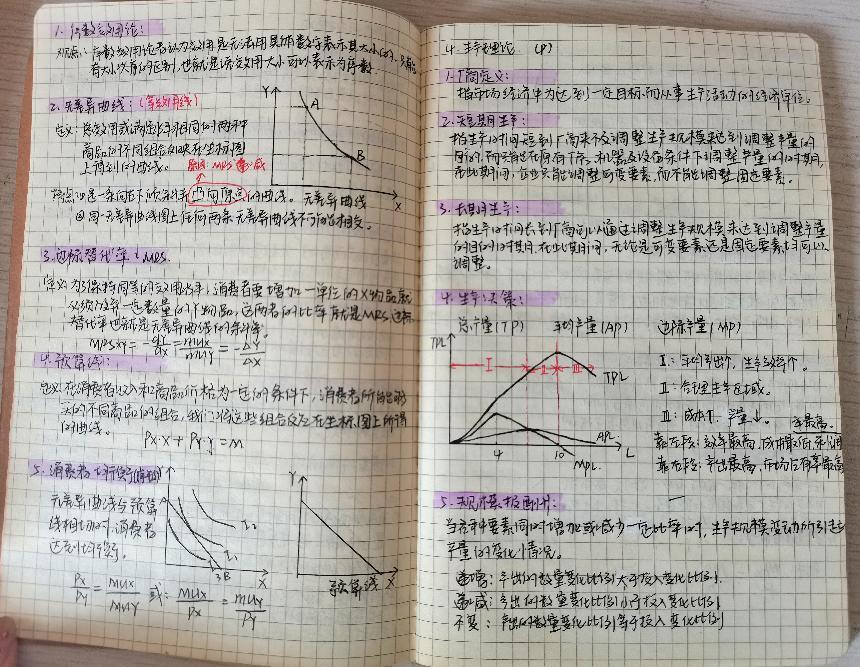 1. 序数效用论：
观点：序数效用论者认为效用是无法用具体数字表示其大小的，只能
有大小次序的区别，也就是该效用大小可以表示为序数
2. 无差异曲线：(等效用线)
定义：
商品的不同组合在坐标图
上得到的曲线。
原因：MRS递减
特点：凸向原点的曲线。无差异曲线
同一无差异曲线图上任何两条无差异曲线不可能相交。
Y
A
B
X
3. 边际替代率：MRS.
定义：为了保持同等的效用水平，消费者要增加一单位的X物品就
必须放弃一定数量的Y物品，这两者的比率就是MRS，边际
替代率也就是无差异曲线的斜率。
MRSxy = -dy/dx = MUx/MUy = -ΔY/ΔX
4. 预算线：
定义：在消费者收入和商品价格为一定的条件下，消费者所能够购
买的不同商品的组合，我们将这些组合反应在坐标图上所得
的曲线。
Px·X + Py·Y = M
5. 消费者均衡
无差异曲线与预算
线相切时，消费者
达到均衡。
Px/Py = MUx/MUy 或：MUx/Px = MUy/Py
Y
A
I₂
I₁
B
X
Y
X
预算线
4. 生产理论 (P)
1. 厂商定义：
指市场经济中为达到一定目标而从事生产活动的经济单位。
2. 短期生产：
指生产时间短到厂商来不及调整生产规模来达到调整产量的
目的，而只能在原有厂房、机器及设备条件下调整产量的时期，
在此期间，企业只能调整可变要素，而不能调整固定要素。
3. 长期生产：
指生产时间长到厂商可以通过调整生产规模来达到调整产量
的目的的时期，在此期间，无论是可变要素还是固定要素均可以
调整。
4. 生产决策：
总产量(TP) 平均产量(AP) 边际产量(MP)
TPL
I
II
III
TPL
APL
MPL
4
10
L
II：合理生产区域。
III：成本↑，产量↓。
靠左段：效率最高，成本最低
靠右段：产出最高，市场占有率最高
5. 规模报酬：
当各种要素同时增加或减少一定比率时，生产规模变动所引起
产量的变化情况。
递增：产出的数量变化比例大于投入变化比例.
递减：产出的数量变化比例小于投入变化比例
不变：产出的数量变化比例等于投入变化比例